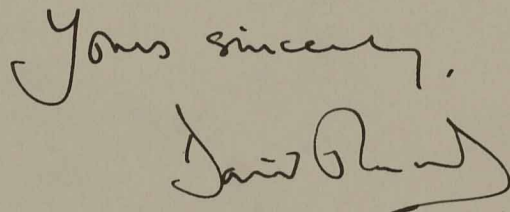 Yours sincerely.
David